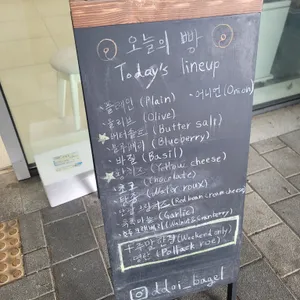 오늘의 빵
Today's lineup
·플레인 (Plain) ·어니언 (Onion)
·올리브 (Olive)
·버터솔트 (Butter salt)
·블루베리 (Blueberry)
·바질 (Basil)
(Yellow cheese)
·초코 (Chocolate)
·탕종 (Water roux)
(Red bean cream cheese)
(Garlic)
(Walnut & Cranberry)
+ 주말 한정 (Weekend only)
·명란 (Pollack roe)
ddoi_bagel